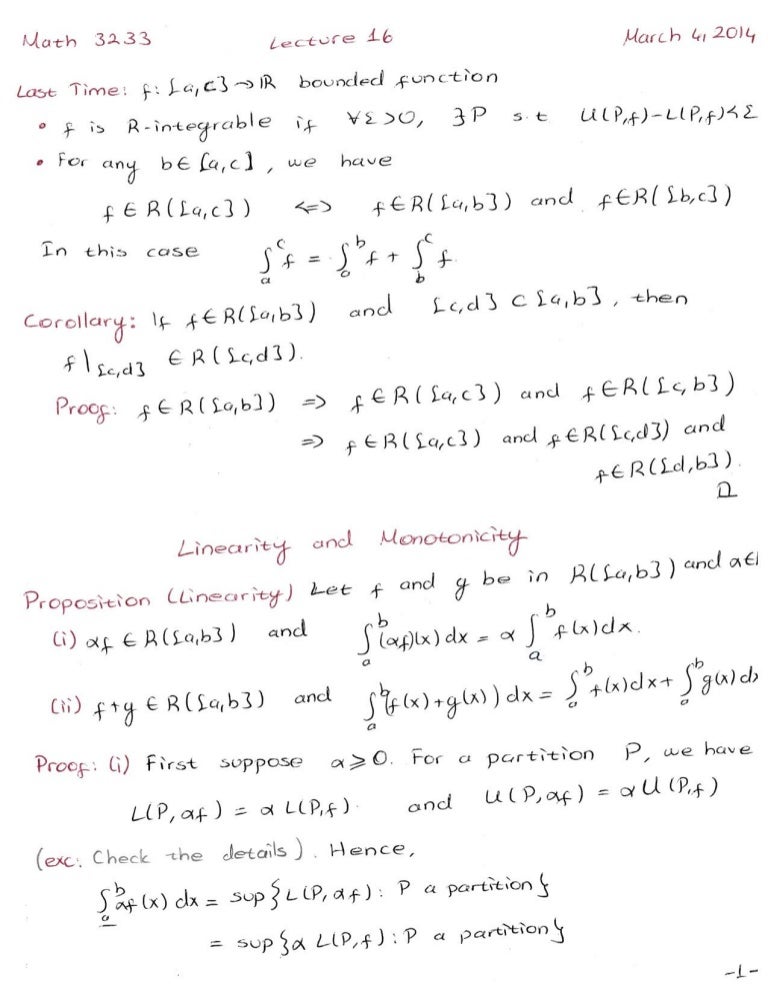 Math 3233 Lecture 16 March 4, 2014
Last Time: f: [a,c] → ℝ bounded function
• f is R-integrable if ∀ε>0, ∃P s.t U(P,f)-L(P,f)<ε
• For any b∈[a,c], we have
f∈R([a,c]) <=> f∈R([a,b]) and f∈R([b,c])
In this case ∫_a^c f = ∫_a^b f + ∫_b^c f.
Corollary: If f∈R([a,b]) and [c,d] ⊂ [a,b], then
f|_[c,d] ∈ R([c,d]).
Proof: f∈R([a,b]) => f∈R([a,c]) and f∈R([c,b])
=> f∈R([a,c]) and f∈R([c,d]) and
f∈R([d,b]).
□
Linearity and Monotonicity
Proposition (Linearity) Let f and g be in R([a,b]) and α∈
(i) αf ∈ R([a,b]) and ∫_a^b (αf)(x) dx = α ∫_a^b f(x)dx.
(ii) f+g ∈ R([a,b]) and ∫_a^b (f(x)+g(x)) dx = ∫_a^b f(x)dx + ∫_a^b g(x)d
Proof: (i) First suppose α≥0. For a partition P, we have
L(P,αf) = α L(P,f). and U(P,αf) = α U(P,f)
(exc: Check the details). Hence,
∫_a^b αf(x) dx = sup{L(P,αf): P a partition}
= sup{α L(P,f): P a partition}
-1-